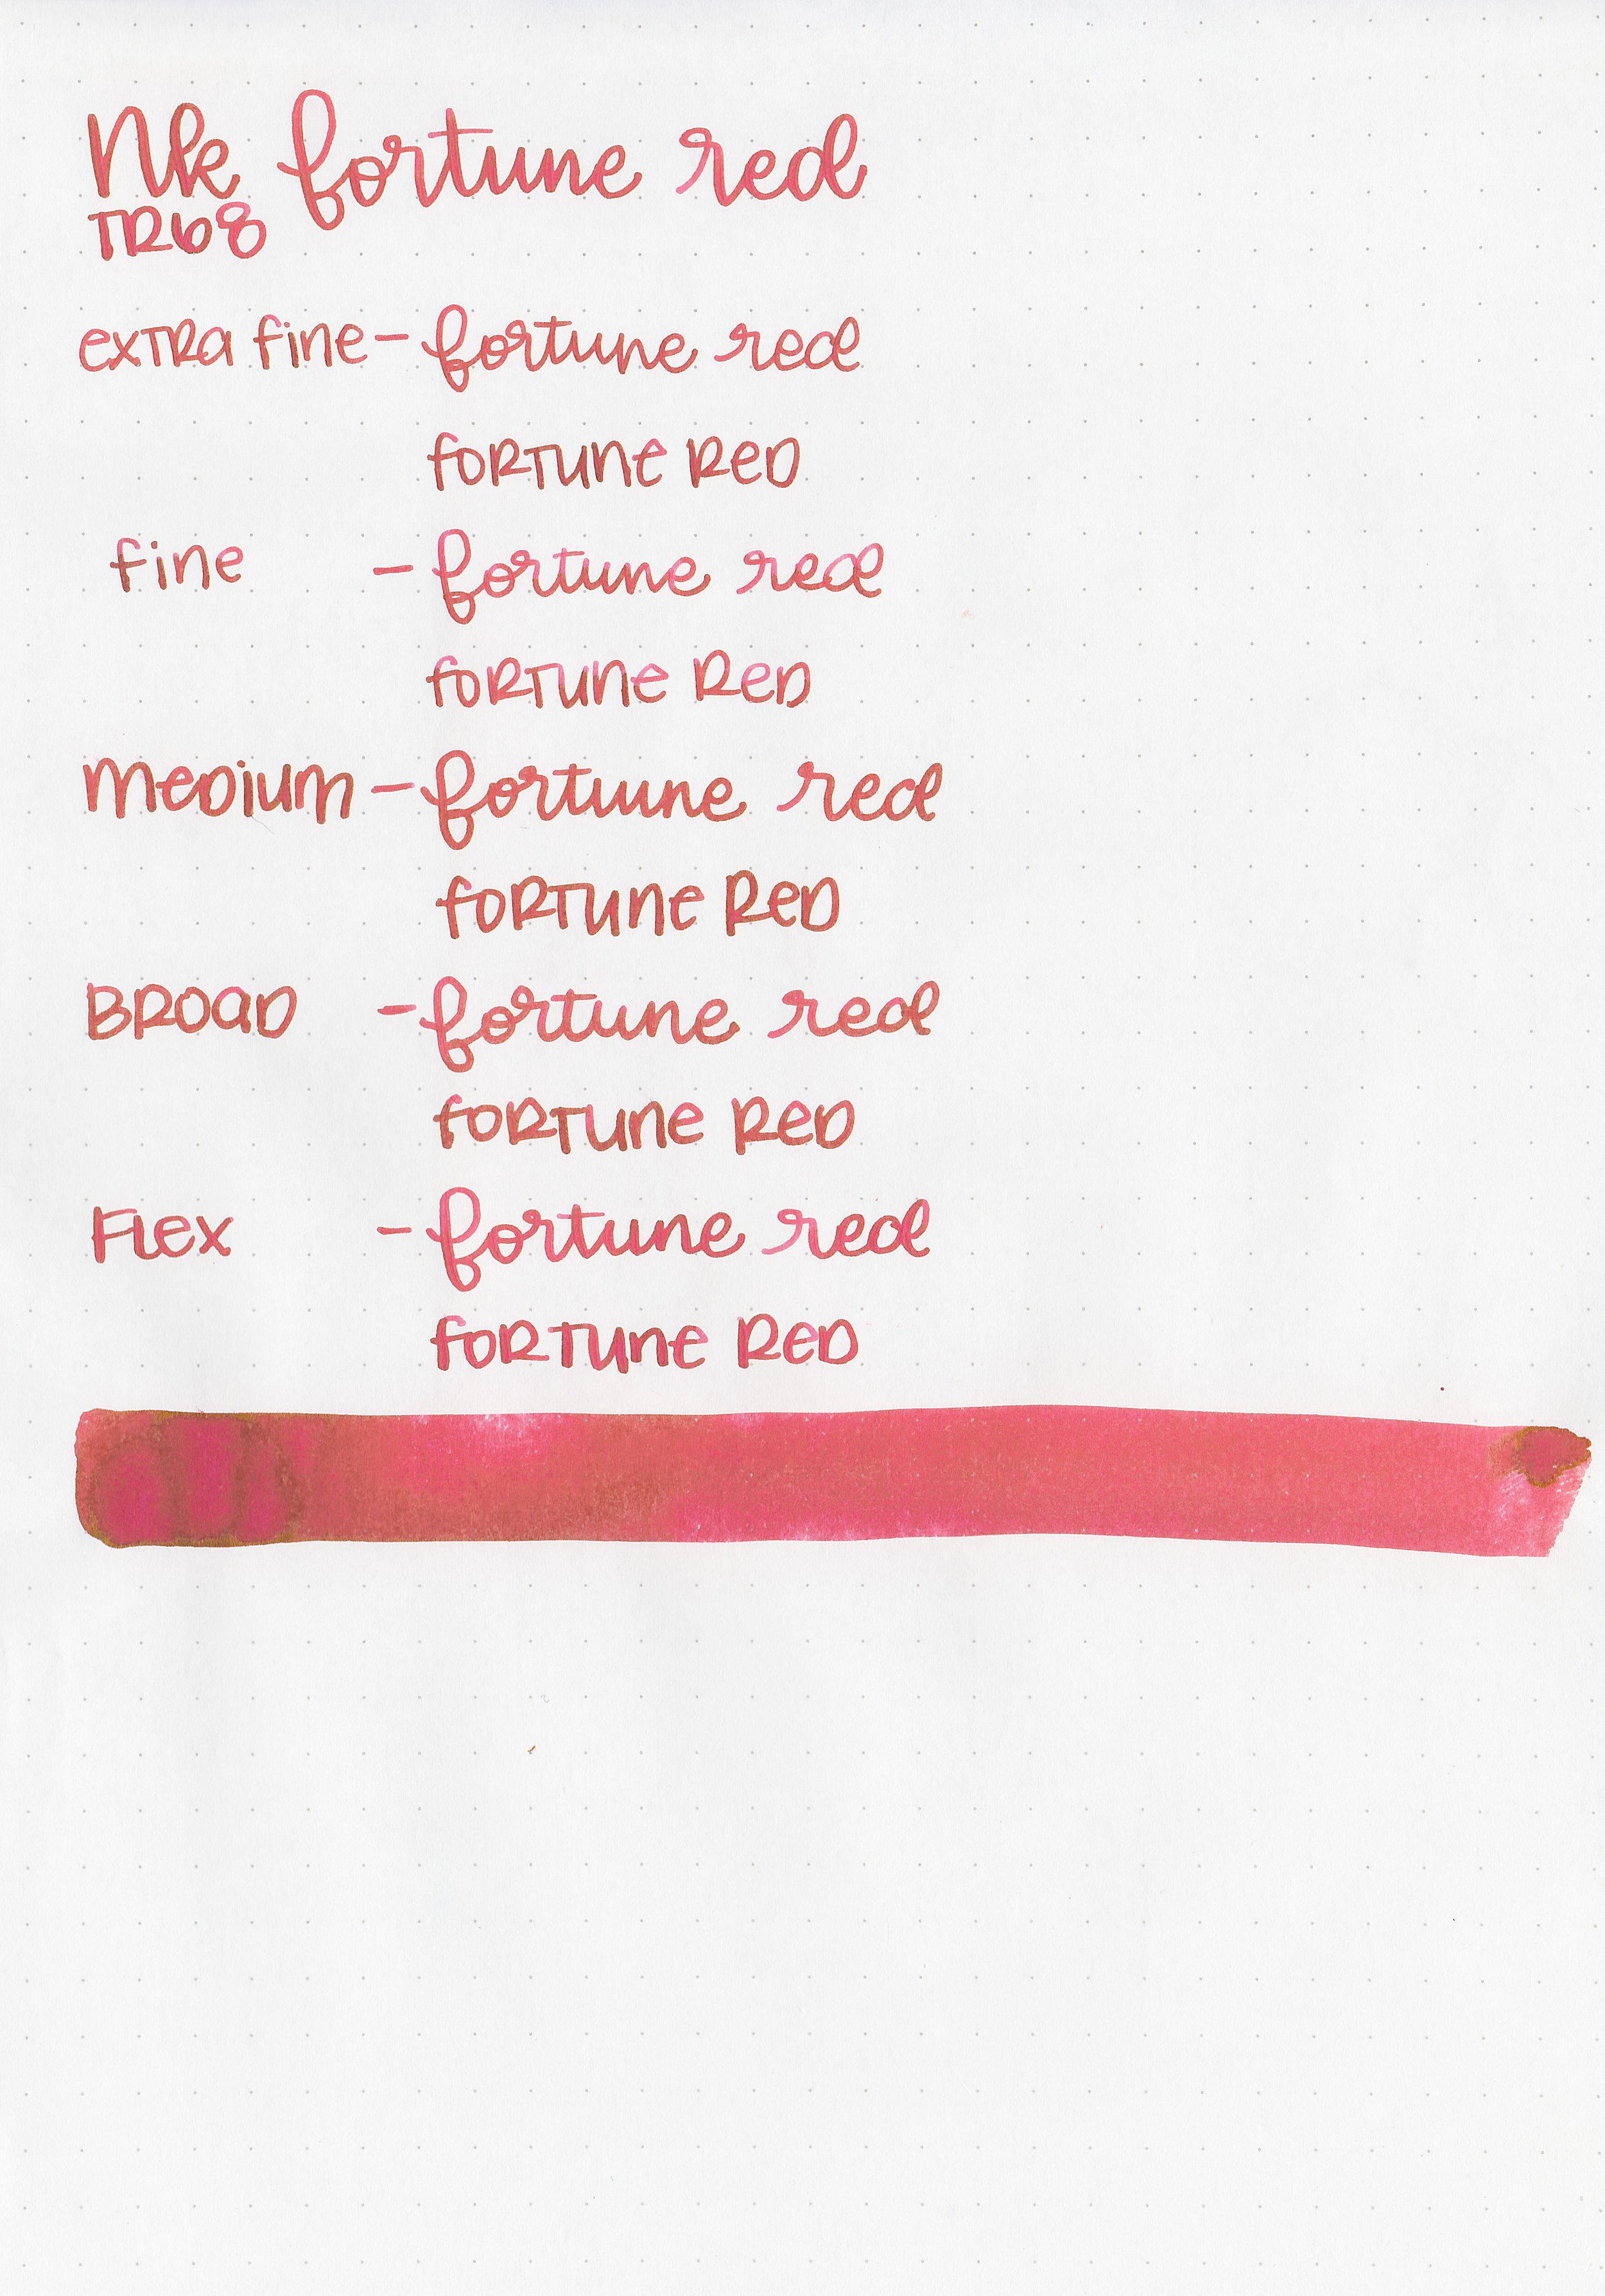 Nk fortune red
TR68
extra fine - fortune red
fortune red
fine - fortune red
fortune red
medium - fortuune red
fortune red
Broad - fortune red
fortune red
Flex - fortune red
fortune red